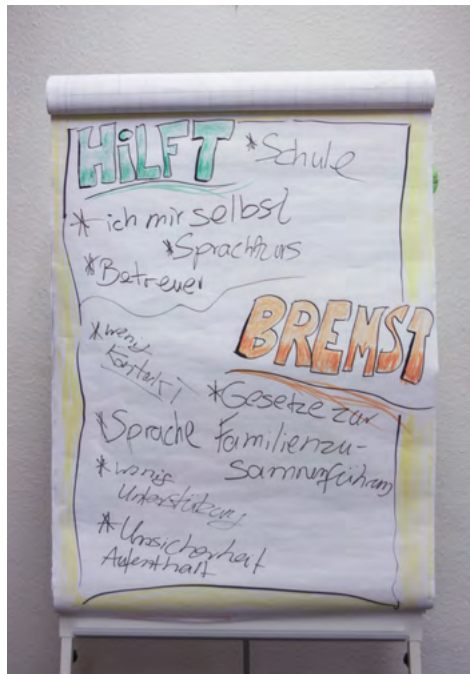 HiLFT
* Schule
* ich mir selbst
* Sprachkurs
* Betreuer
BREMST
* wenig
Kontakt
* Gesetze zur
Familienzu-
sammenführung
* Sprache
* wenig
Unterstützung
* Unsicherheit
Aufenthalt